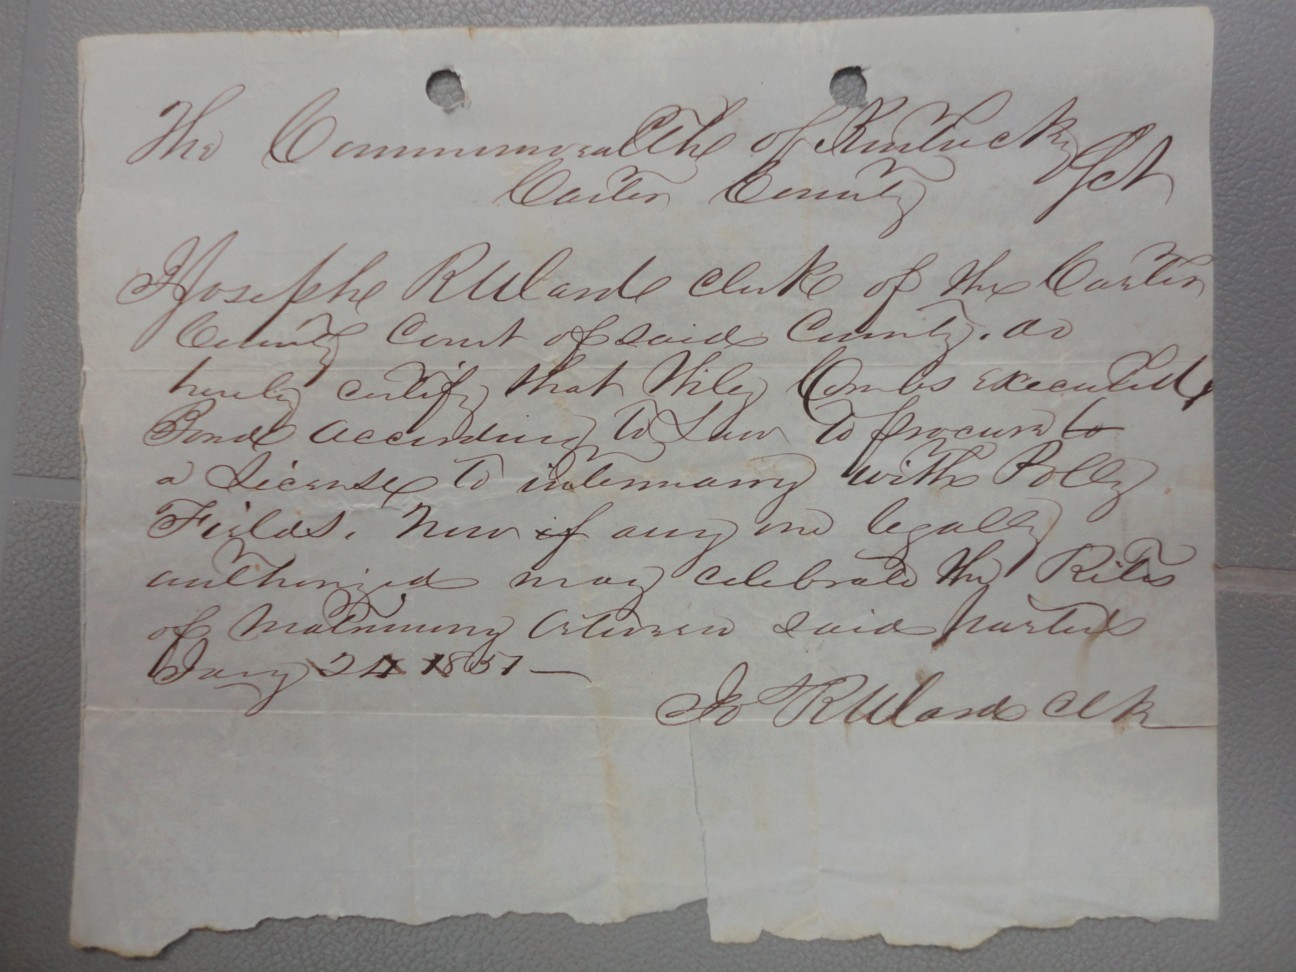 The Commonwealth of Kentucky Sct
Carter County
I Joseph R Ward Clerk of the Carter
County Court of said County. do
hereby certify that Wiley Combs executed
Bond according to Law to procure to
a License to intermarry with Polly
Fields. Now if any one legally
authorized may celebrate the Rites
of Matrimony between said parties
Jany 24 1851
Jo R Ward Clk